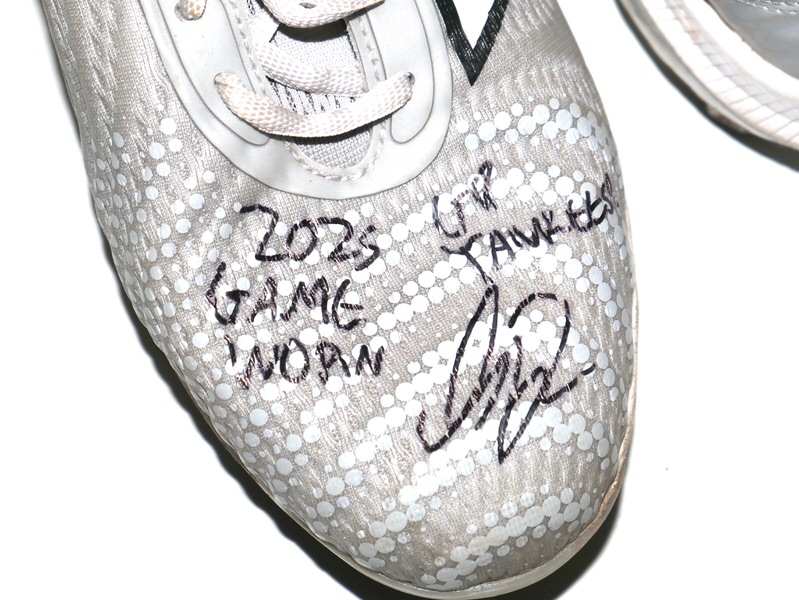 2025
GAME
WORN
GR
YANKEES